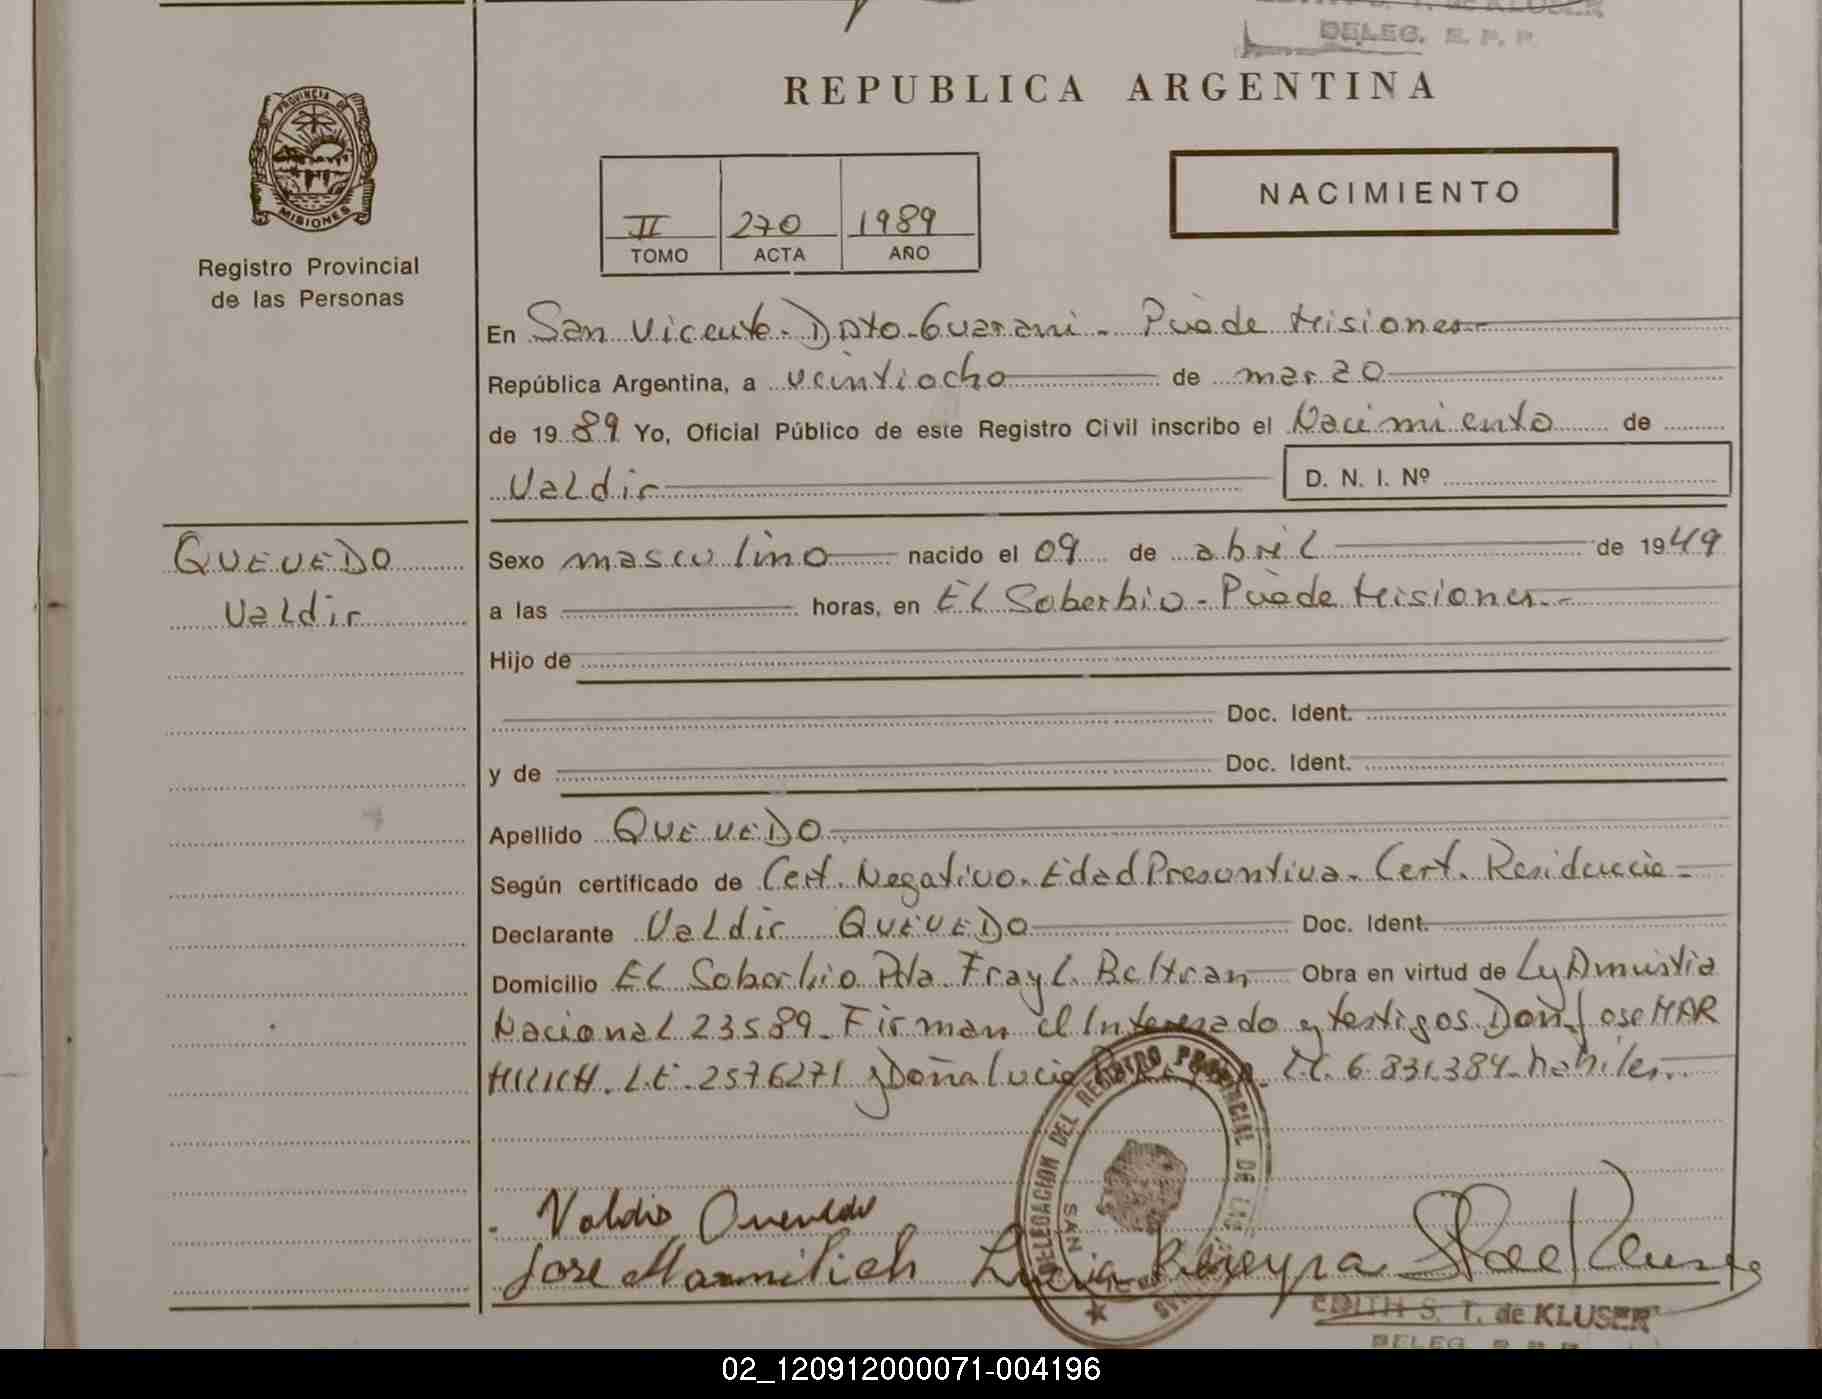 EDITH S. T. de KLUSER
DELEG. R. P. P.
REPUBLICA ARGENTINA
PROVINCIA DE
MISIONES
Registro Provincial
de las Personas
II 270 1989
TOMO ACTA AÑO
NACIMIENTO
En San Vicente - Dpto - Guarani - Pcia de Misiones.-
República Argentina, a veintiocho de marzo
de 19 89 Yo, Oficial Público de este Registro Civil inscribo el Nacimiento de
Valdir D. N. I. Nº
QUEVEDO
Valdir
Sexo masculino nacido el 09 de abril de 1949
a las horas, en EL Soberbio - Pcia de Misiones.-
Hijo de
Doc. Ident.
y de Doc. Ident.
Apellido QUEVEDO.
Según certificado de Cert. Negativo. Edad Presuntiva. Cert. Residencia -
Declarante Valdir QUEVEDO Doc. Ident.
Domicilio EL Soberbio Pda. Fray L. Beltran Obra en virtud de Ley Amnistia
Nacional 23589 - Firman el Interesado y testigos Don Jose MAR
L.E. 2576271 y Doña Lucia L.C. 6.831.384 - habiles.-
DELEGACION DEL REGISTRO PROVINCIAL DE LAS
SAN
Valdir Quevedo
Jose Lucia
EDITH S. T. de KLUSER
DELEG. R. P. P.
02_120912000071-004196